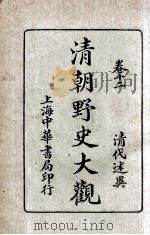 卷十二 清代述異
清朝野史大觀
上海中華書局印行
mtoou.info mtoou.info